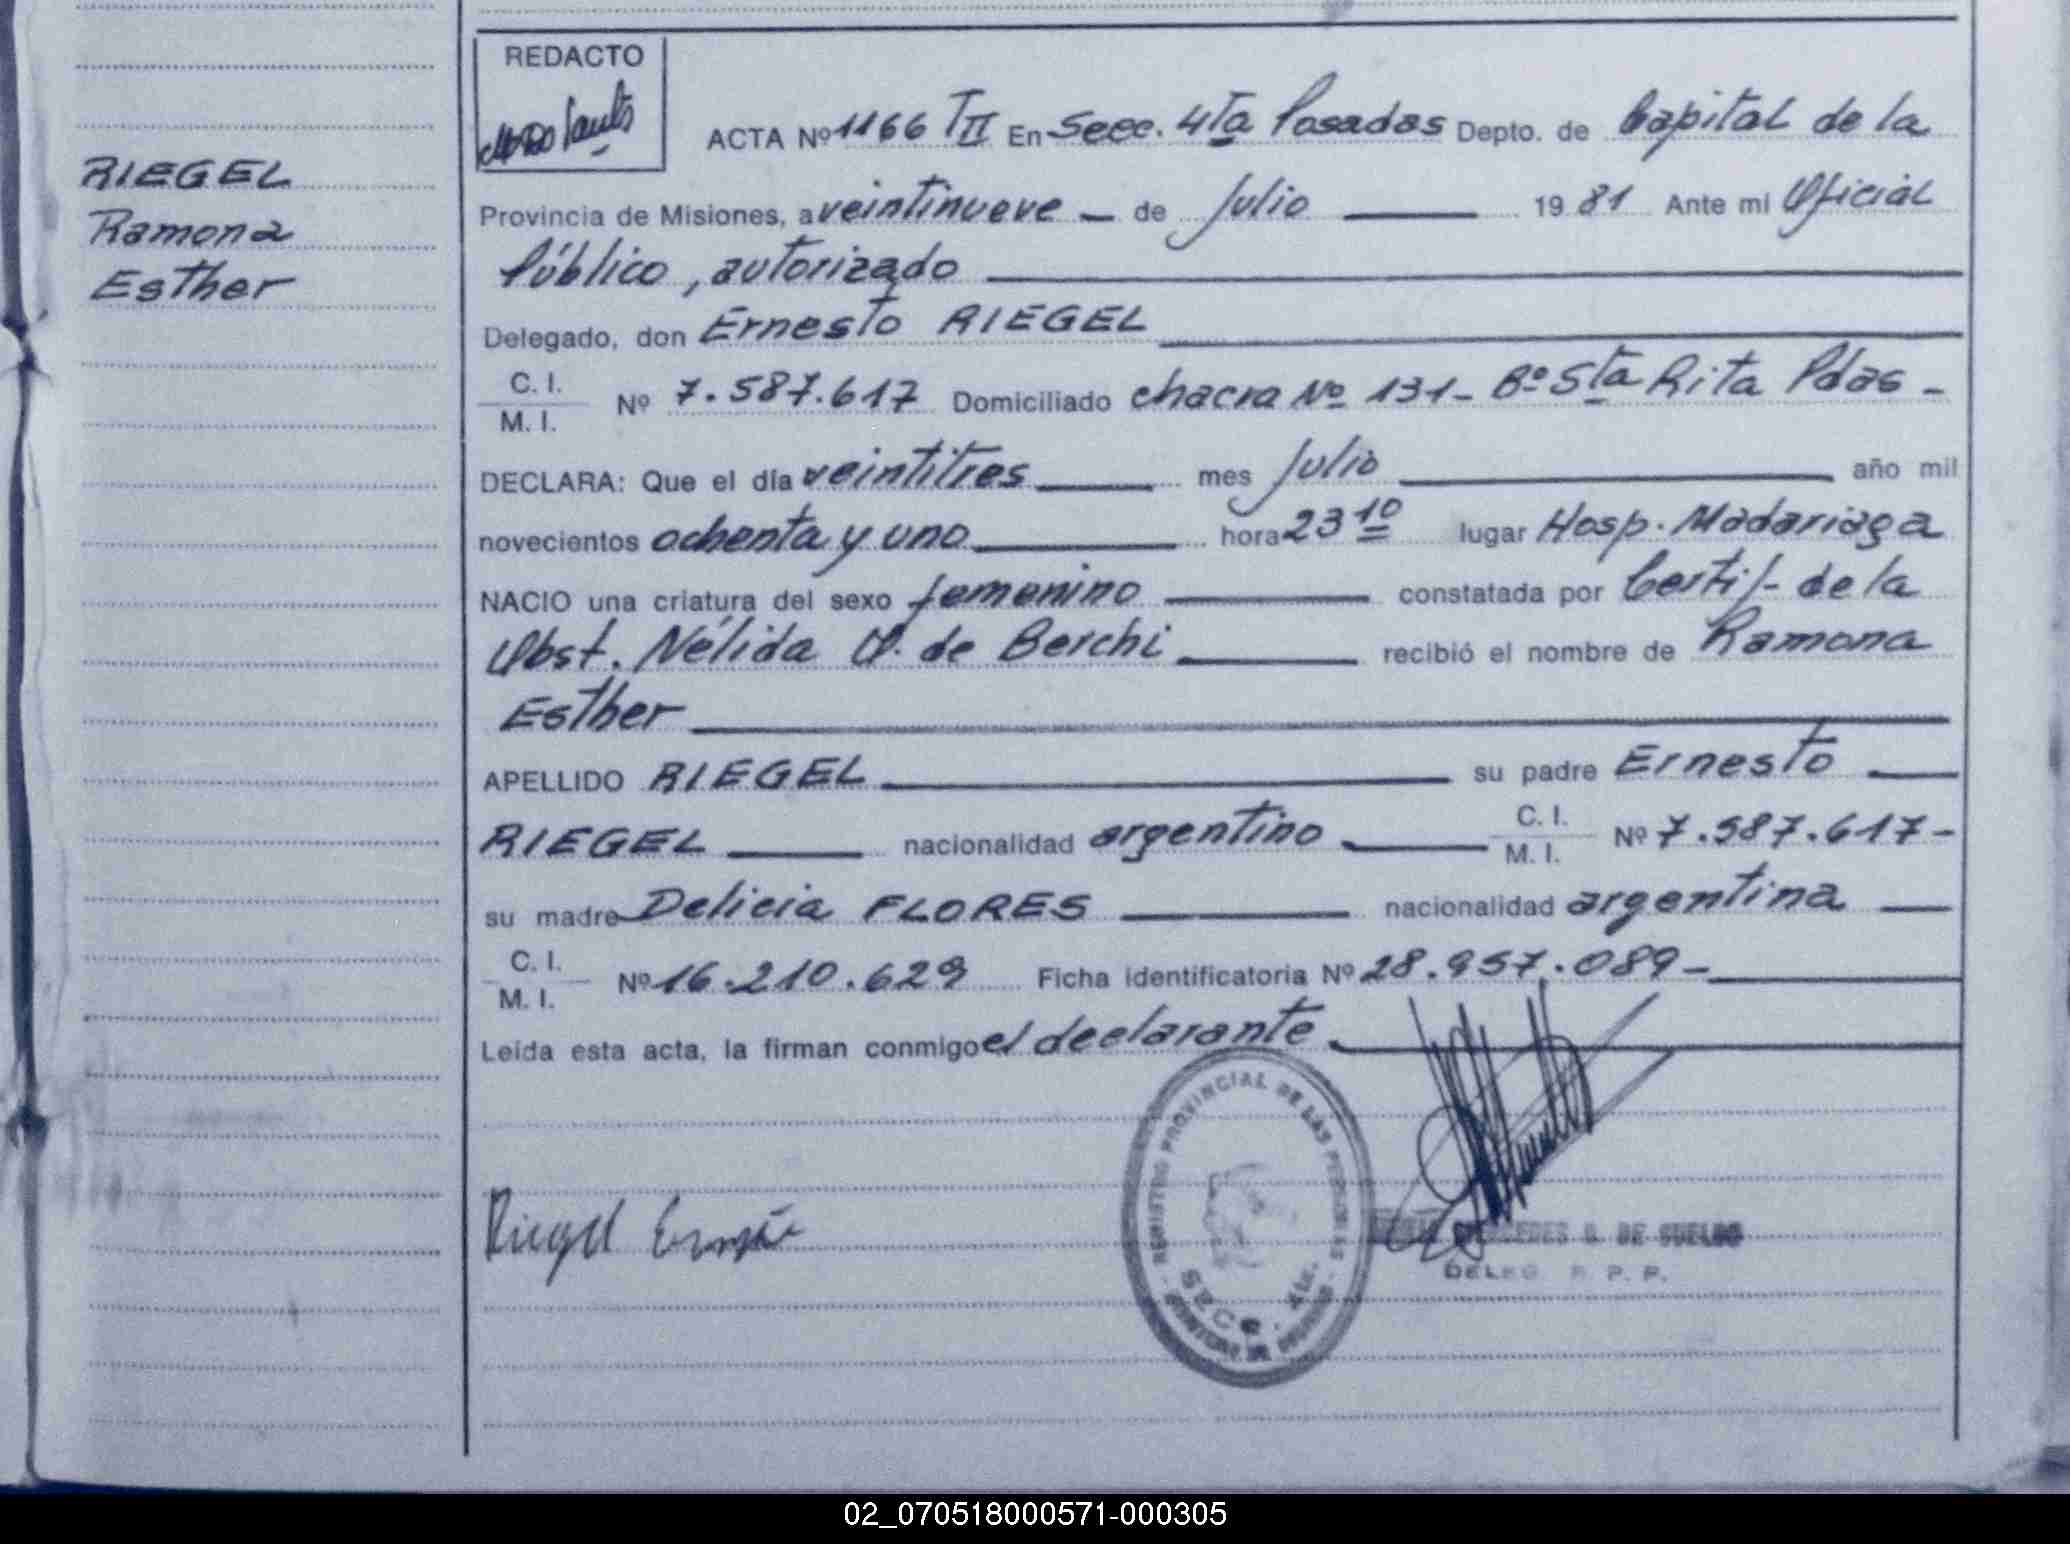 REDACTO
ACTA Nº 1166 TII En Secc. 4ta Posadas Depto. de Capital de la
RIEGEL
Ramona
Esther
Provincia de Misiones, a veintinueve — de Julio — 19 81 Ante mi Oficial
Público, autorizado
Delegado, don Ernesto RIEGEL
C. I.
M. I. Nº 7.587.617 Domiciliado chacra Nº 131- Bº Sta Rita Pdas -
DECLARA: Que el día veintitres mes Julio año mil
novecientos ochenta y uno hora 23 10 lugar Hosp. Madariaga
NACIO una criatura del sexo femenino constatada por Certif- de la
Obst. Nélida O. de Berchi recibió el nombre de Ramona
Esther
APELLIDO RIEGEL su padre Ernesto
RIEGEL nacionalidad argentino C. I.
M. I. Nº 7.587.617-
su madre Delicia FLORES nacionalidad argentina
C. I.
M. I. Nº 16.210.629 Ficha identificatoria Nº 28.957.089-
Leída esta acta, la firman conmigo el declarante
REGISTRO PROVINCIAL DE LAS PERSONAS
SECC. 4ta.
Riegel Ernesto
DE SUELDO
DELEG. R. P. P.
02_070518000571-000305